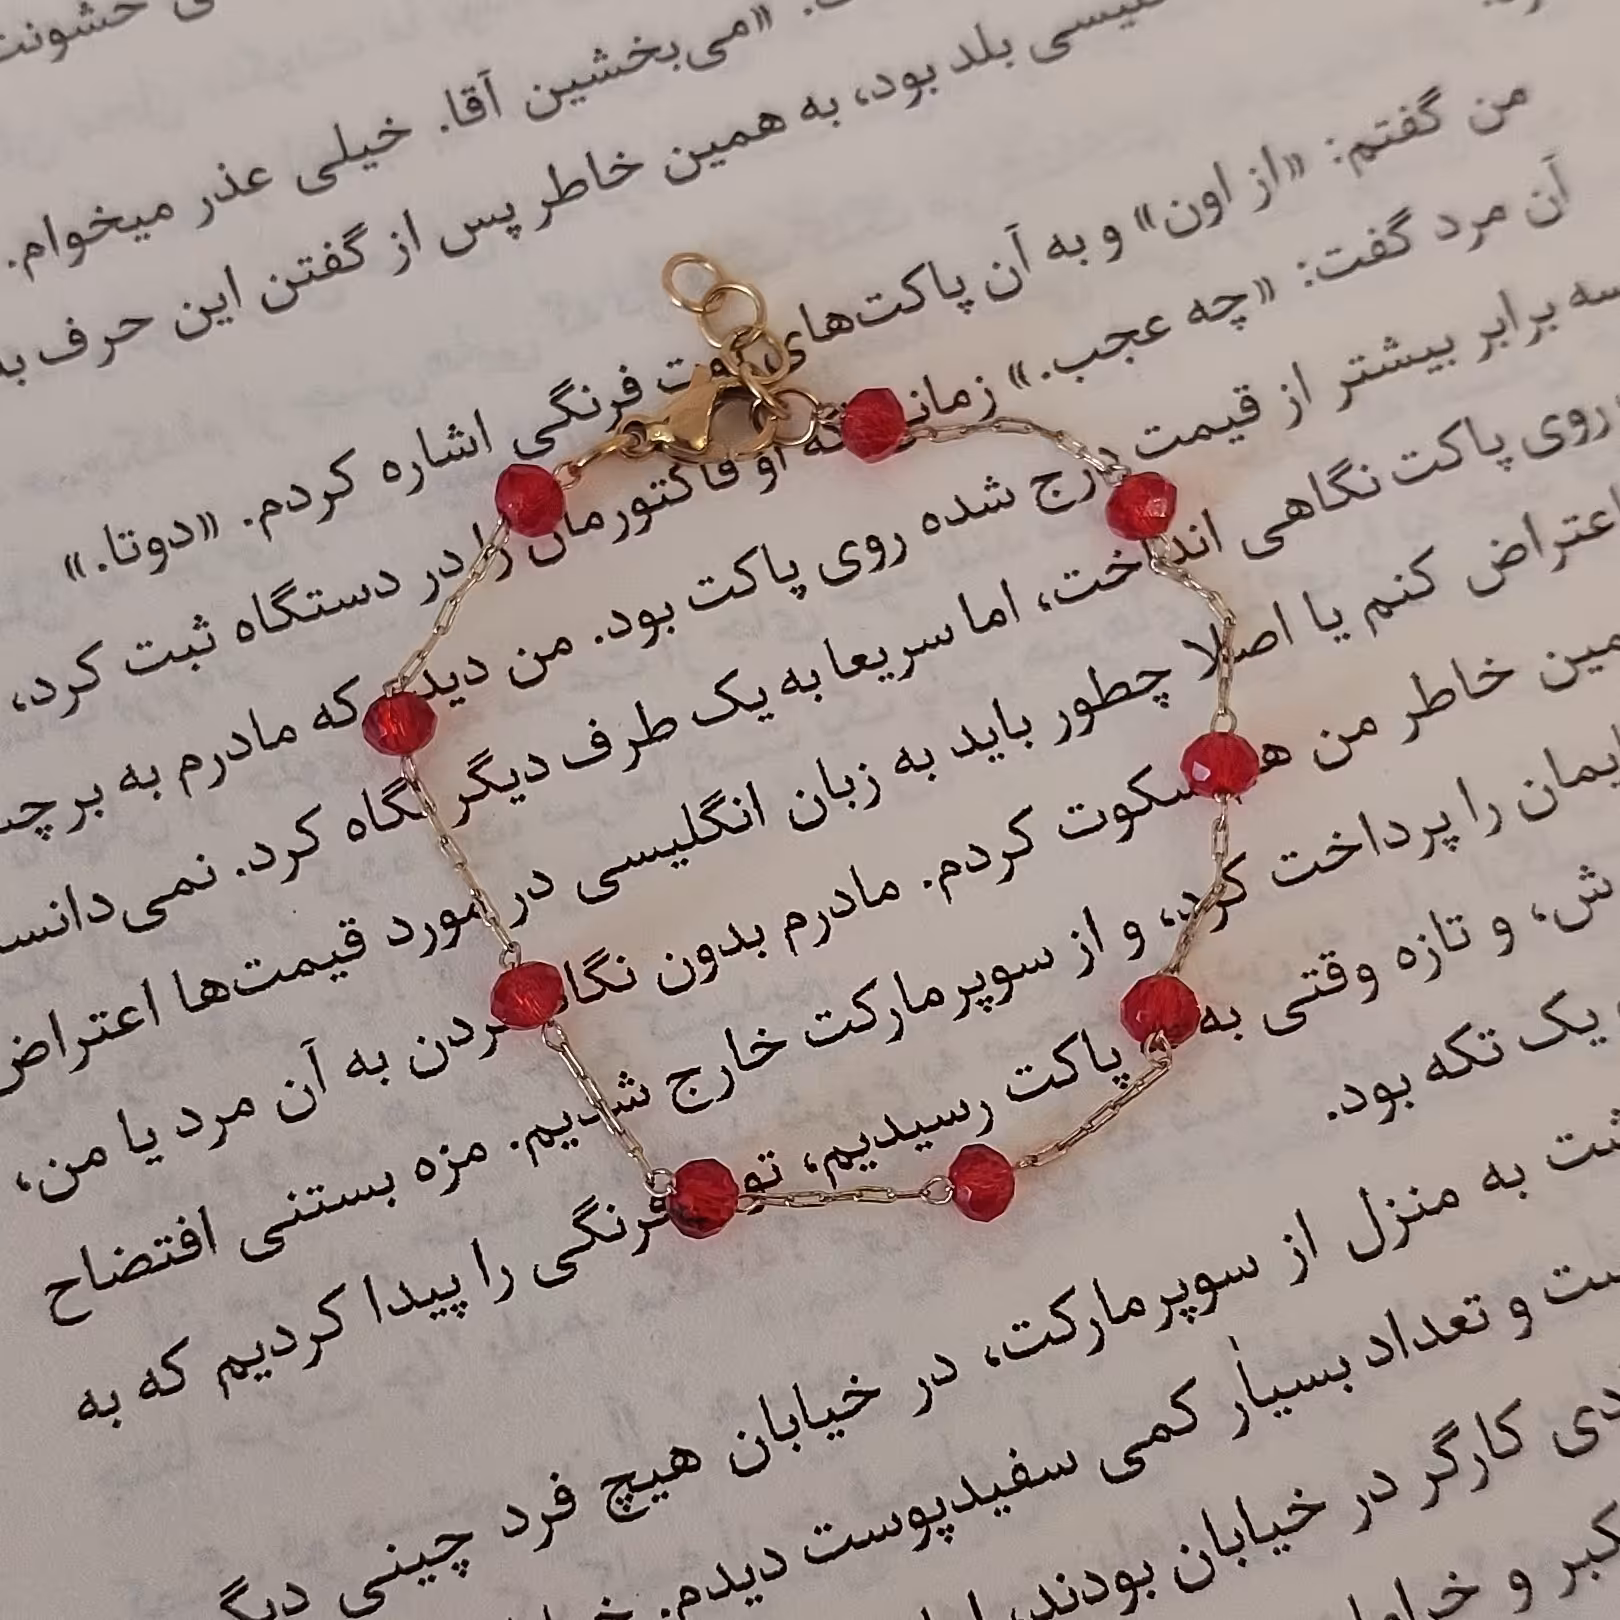 خشونت
«می‌بخشین آقا. خیلی عذر میخوام.
بلد بود، به همین خاطر پس از گفتن این حرف به
من گفتم: «از اون» و به آن پاکت‌های توت فرنگی اشاره کردم. «دوتا.»
آن مرد گفت: «چه عجب.» زمانی که او فاکتورمان را در دستگاه ثبت کرد،
سه برابر بیشتر از قیمت درج شده روی پاکت بود. من دیدم که مادرم به برچس
روی پاکت نگاهی انداخت، اما سریعا به یک طرف دیگر نگاه کرد. نمی‌دانس
اعتراض کنم یا اصلا چطور باید به زبان انگلیسی در مورد قیمت‌ها اعتراض
مین خاطر من هم سکوت کردم. مادرم بدون نگاه کردن به آن مرد یا من،
یمان را پرداخت کرد، و از سوپرمارکت خارج شدیم. مزه بستنی افتضاح
ش، و تازه وقتی به پاکت رسیدیم، توت فرنگی را پیدا کردیم که به
یک تکه بود.
شت به منزل از سوپرمارکت، در خیابان هیچ فرد چینی دیگ
ست و تعداد بسیار کمی سفیدپوست دیدم.
دی کارگر در خیابان بودند،
کبر و